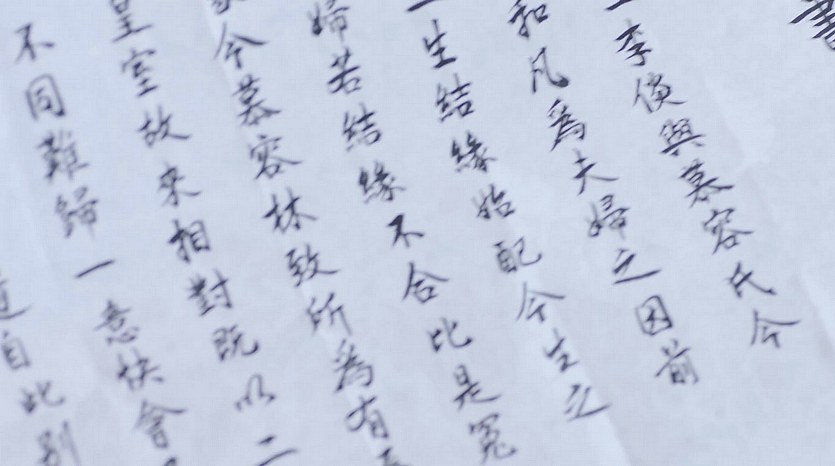 書
李偵與慕容氏今
和凡為夫婦之因前
生結緣始配今生之
婦若結緣不合比是冤
今慕容林致所為有
皇室故來相對既以二
不同難歸一意快會
自此別